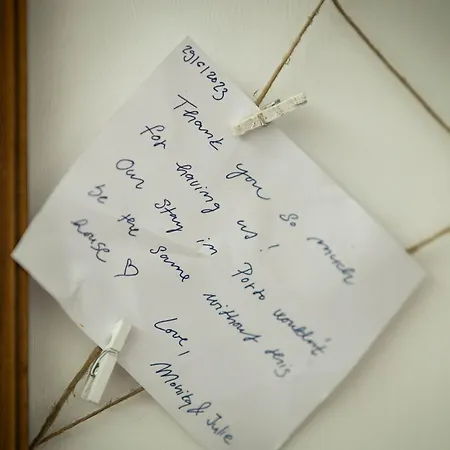 29/6/2023
Thank you so much
for having us!
Our stay in Porto wouldn't
be the same without this
house ♡
Love,
& Julie